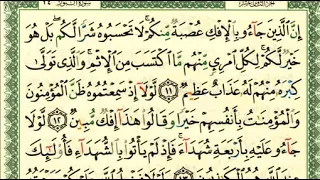 إِنَّ ٱلَّذِينَ جَآءُو بِٱلْإِفْكِ عُصْبَةٌ مِّنكُمْ ۚ لَا تَحْسَبُوهُ شَرًّا لَّكُم ۖ بَلْ هُوَ
خَيْرٌ لَّكُمْ ۚ لِكُلِّ ٱمْرِئٍ مِّنْهُم مَّا ٱكْتَسَبَ مِنَ ٱلْإِثْمِ ۚ وَٱلَّذِى تَوَلَّىٰ
كِبْرَهُۥ مِنْهُمْ لَهُۥ عَذَابٌ عَظِيمٌ ١١ لَّوْلَآ إِذْ سَمِعْتُمُوهُ ظَنَّ ٱلْمُؤْمِنُونَ
وَٱلْمُؤْمِنَٰتُ بِأَنفُسِهِمْ خَيْرًا وَقَالُوا۟ هَٰذَآ إِفْكٌ مُّبِينٌ ١٢ لَّوْلَا
جَآءُو عَلَيْهِ بِأَرْبَعَةِ شُهَدَآءَ ۚ فَإِذْ لَمْ يَأْتُوا۟ بِٱلشُّهَدَآءِ فَأُو۟لَٰٓئِكَ